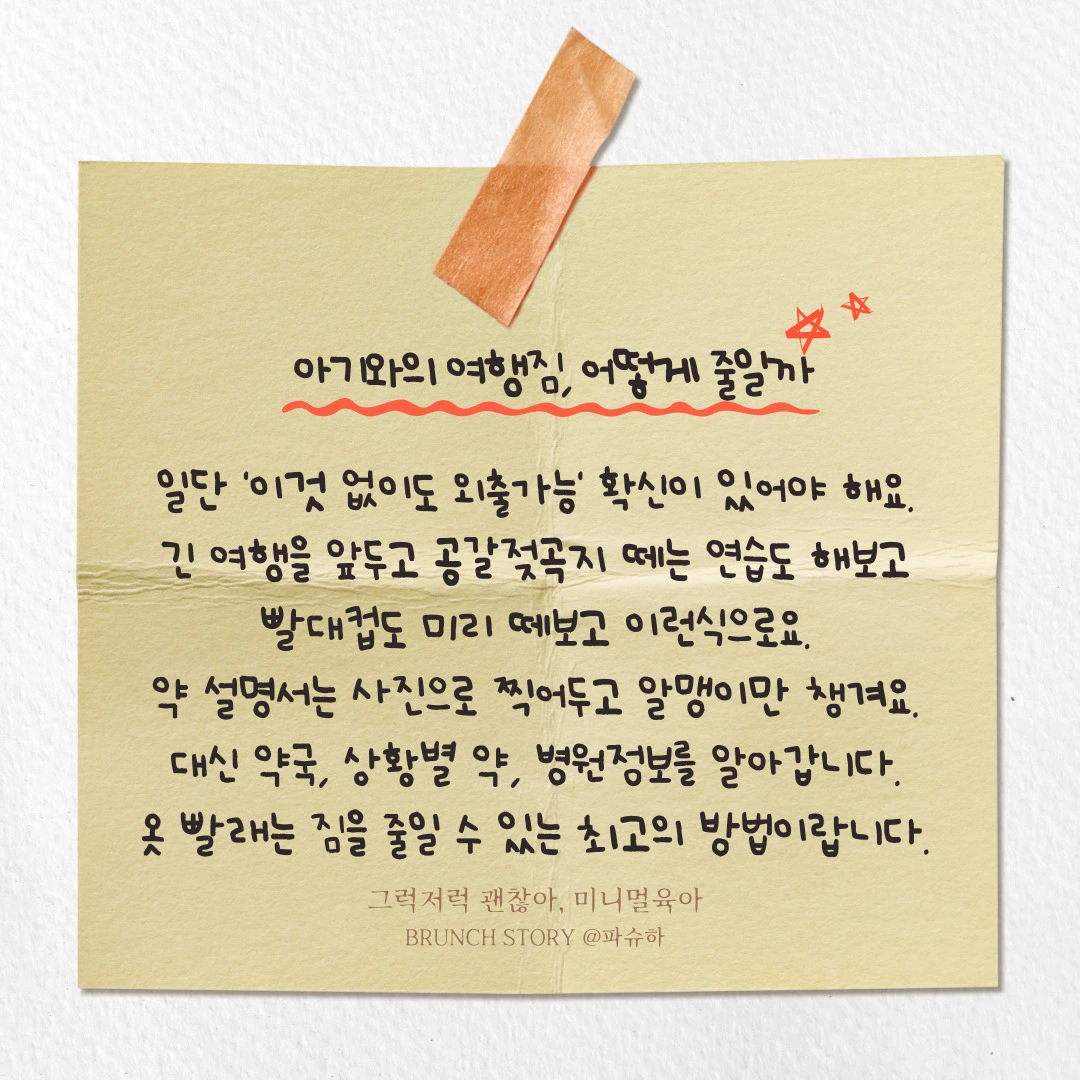 아기와의 여행짐, 어떻게 줄일까
일단 '이것 없이도 외출가능' 확신이 있어야 해요.
긴 여행을 앞두고 공갈젖꼭지 떼는 연습도 해보고
빨대컵도 미리 떼보고 이런식으로요.
약 설명서는 사진으로 찍어두고 알맹이만 챙겨요.
대신 약국, 상황별 약, 병원정보를 알아갑니다.
옷 빨래는 짐을 줄일 수 있는 최고의 방법이랍니다.
그럭저럭 괜찮아, 미니멀육아
BRUNCH STORY @파슈하